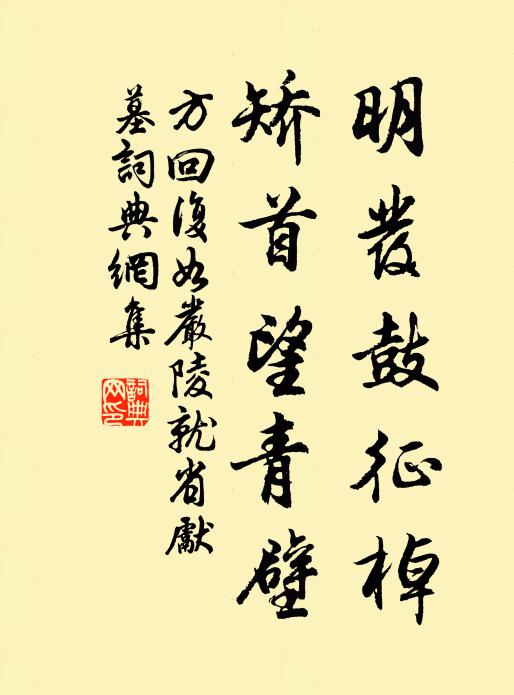 明發鼓征棹
矯首望青壁
方回復如嚴陵就省獻
墓詞典網集
詞典網印